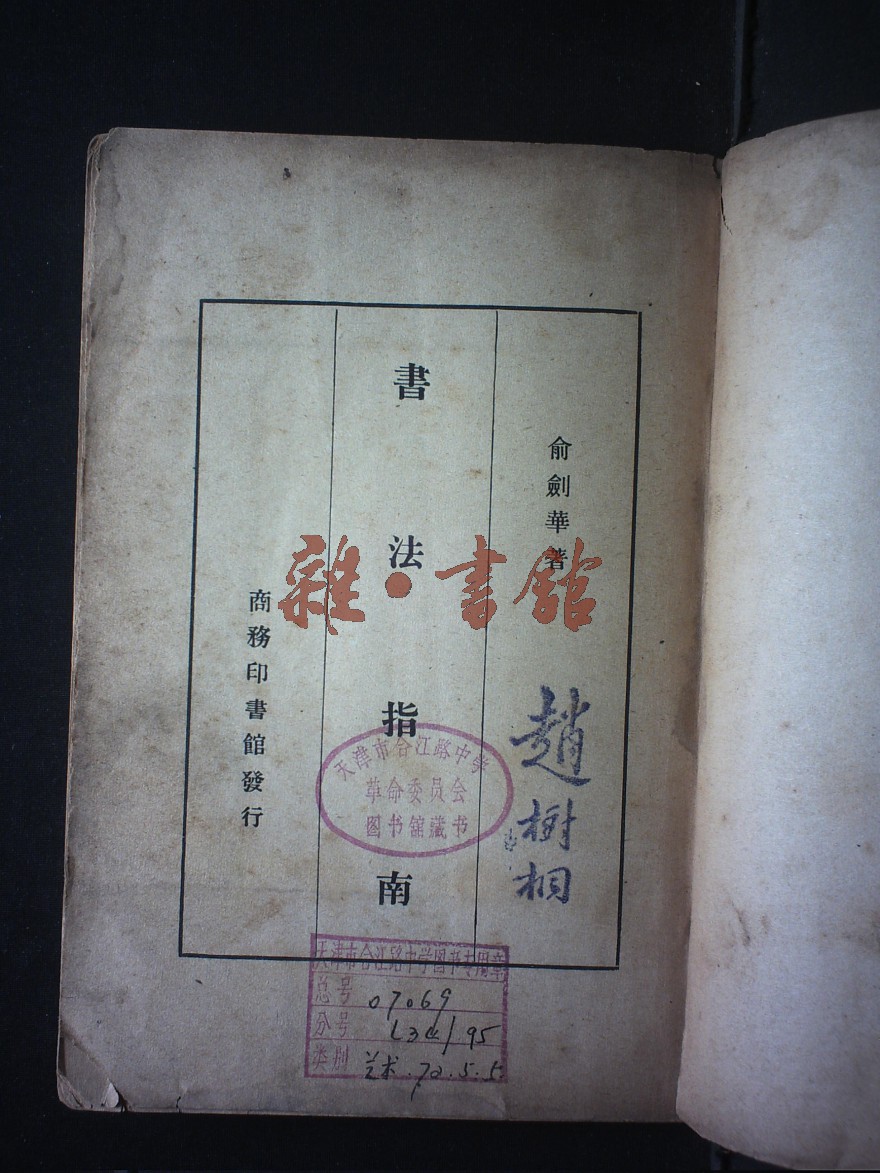 俞劍華著
書法指南
商務印書館發行
雜·書館
趙樹桐
天津市合江路中学
革命委员会
图书馆藏书
天津市合江路中学图书专用章
总号 07069
分号
类别 艺术.72.5.5.